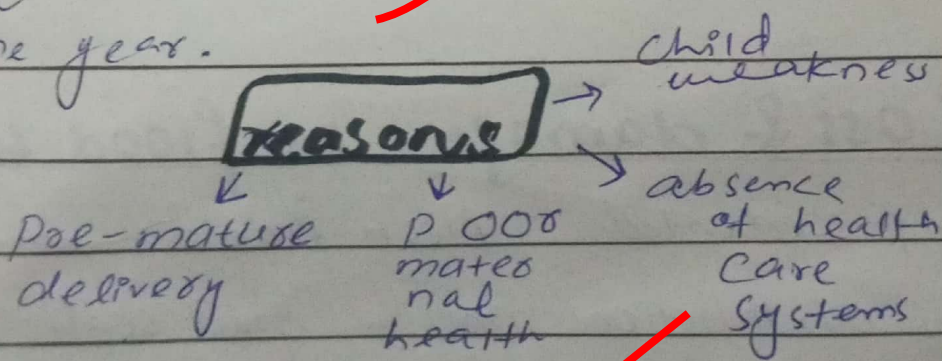 year.
child
weakness
reasons
Pre-mature
delivery
poor
mater
nal
health
absence
of health
care
systems